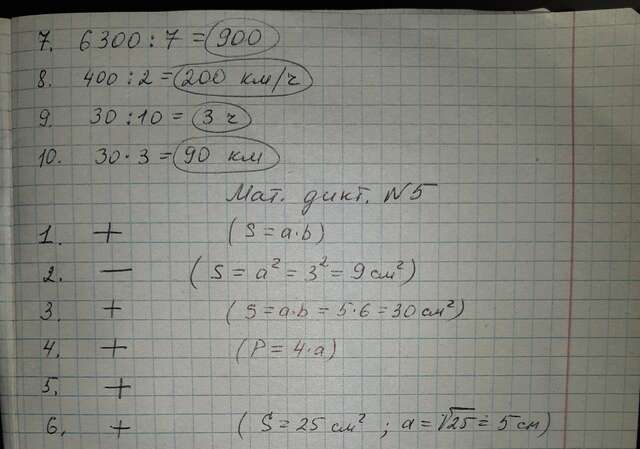 7. 6300 : 7 = 900
8. 400 : 2 = 200 км/ч
9. 30 : 10 = 3 ч
10. 30 · 3 = 90 км
Мат. дикт. N5
1. + (S = a·b)
2. — (S = a² = 3² = 9 см²)
3. + (S = a·b = 5·6 = 30 см²)
4. + (P = 4·a)
5. +
6. + (S = 25 см² ; a = √25 = 5 см)